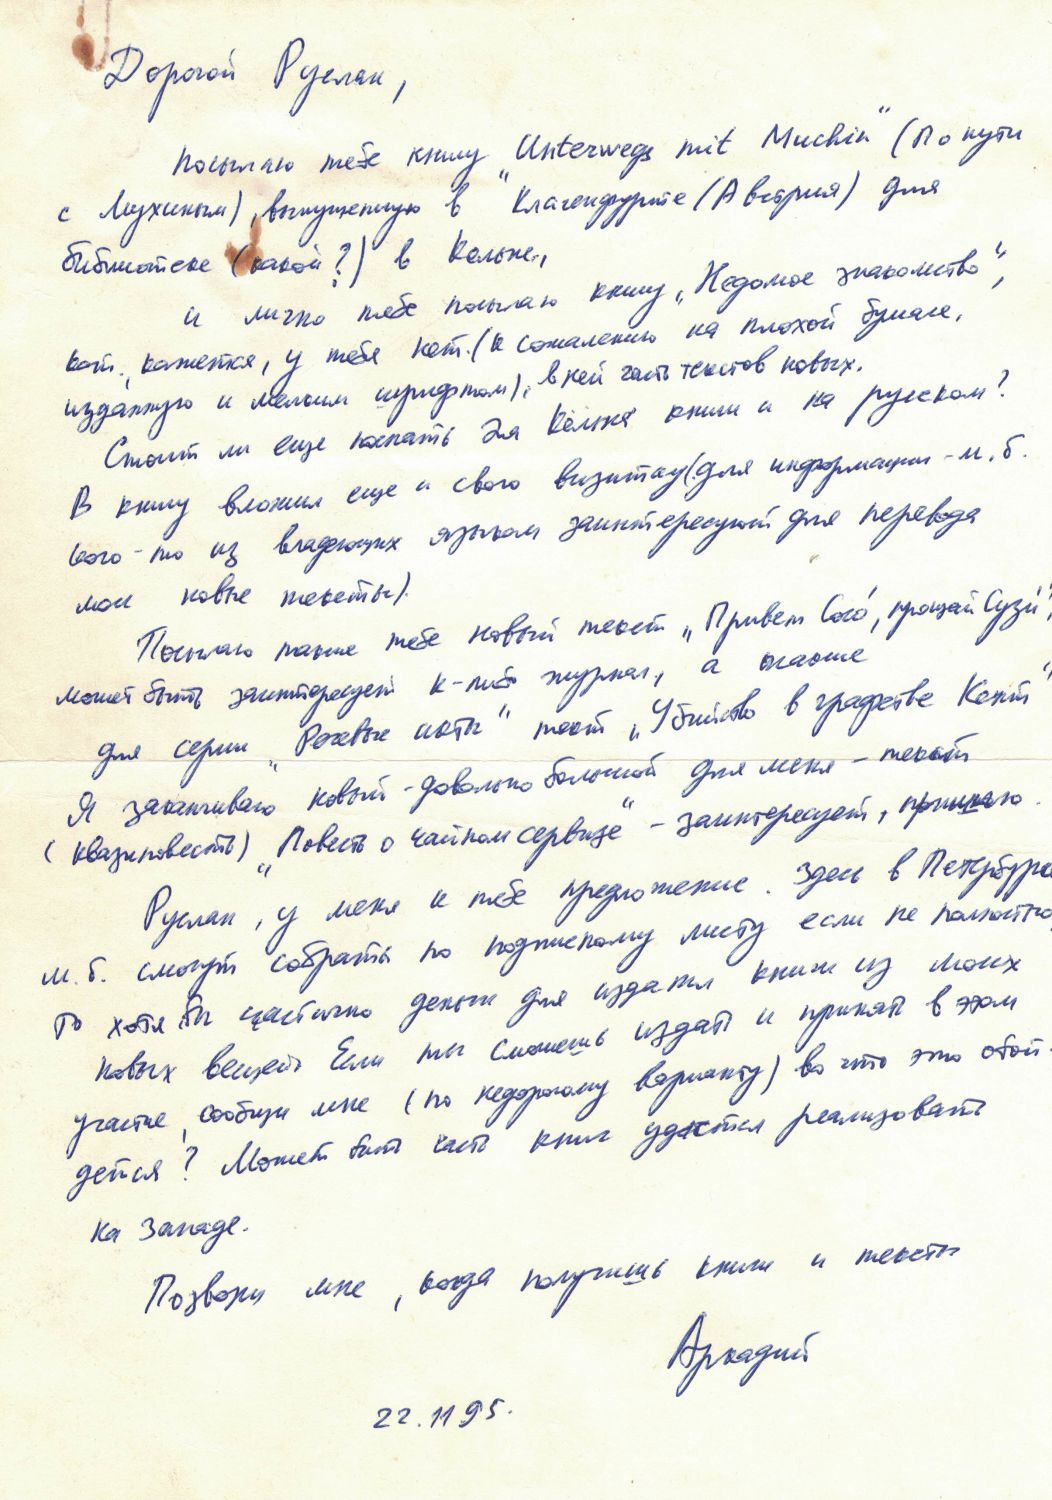 Дорогой Руслан,
посылаю тебе книгу „Unterwegs mit Muchin“ (По пути
с Мухиным), выпущенную в Клагенфурте (Австрия) для
библиотеке (какой?) в Кельне,
и лично тебе посылаю книгу „Недомое знакомство“,
кот., кажется, у тебя нет. (к сожалению на плохой бумаге,
изданную и мелким шрифтом), в ней часть текстов новых.
Стоит ли еще послать для Кёльна книги и на русском?
В книгу вложил еще и свою визитку (для информации - м.б.
кого-то из владеющих языком заинтересуют для перевода
мои новые тексты).
Посылаю также тебе новый текст „Привет Сого́, прощай Сузи́“,
может быть заинтересует к-либо журнал, а также
для серии „Речевые акты“ текст „Убийство в графстве Кент“
Я заканчиваю новый - довольно большой для меня - текст
(квазиповесть) „Повесть о чайном сервизе“ - заинтересует, пришлю.
Руслан, у меня к тебе предложение. Здесь в Петербурге
м.б. смогут собрать по подписному листу если не полностью,
то хотя бы частично деньги для издания книги из моих
новых вещей. Если ты сможешь издать и принять в этом
участие, сообщи мне (по недорогому варианту) во что это обой-
дется? Может быть часть книг удастся реализовать
на Западе.
Позвони мне, когда получишь книги и тексты
Аркадий
22.11 95.